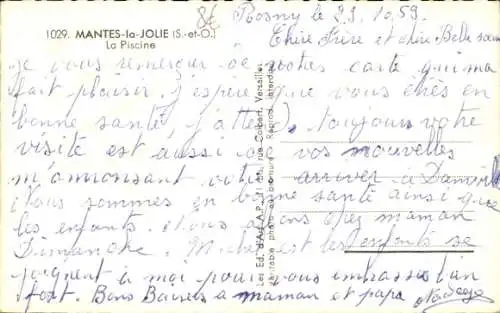 1029. MANTES-la-JOLIE (S.-et-O.)
La Piscine
Rosny le 29.10.59
Chère Frère et chère Belle sœur
je vous remercier de votres carte qui m'a
fait plaisir. j'espère que vous êtes en
bonne santé, j'attend, toujour votre
visite est aussi de vos nouvelles
m'annonsant votre arriver à
Nous sommes en bonne santé ainsi que
les enfants. Nous chez maman
Dimanche. est les enfants se
joignent à moi pour vous embrasser bien
fort. Bons Baisers a maman et papa
Les Ed. d'Art A.P. rue Colbert, Versailles
Véritable photo au bromure - Reprod. interdite